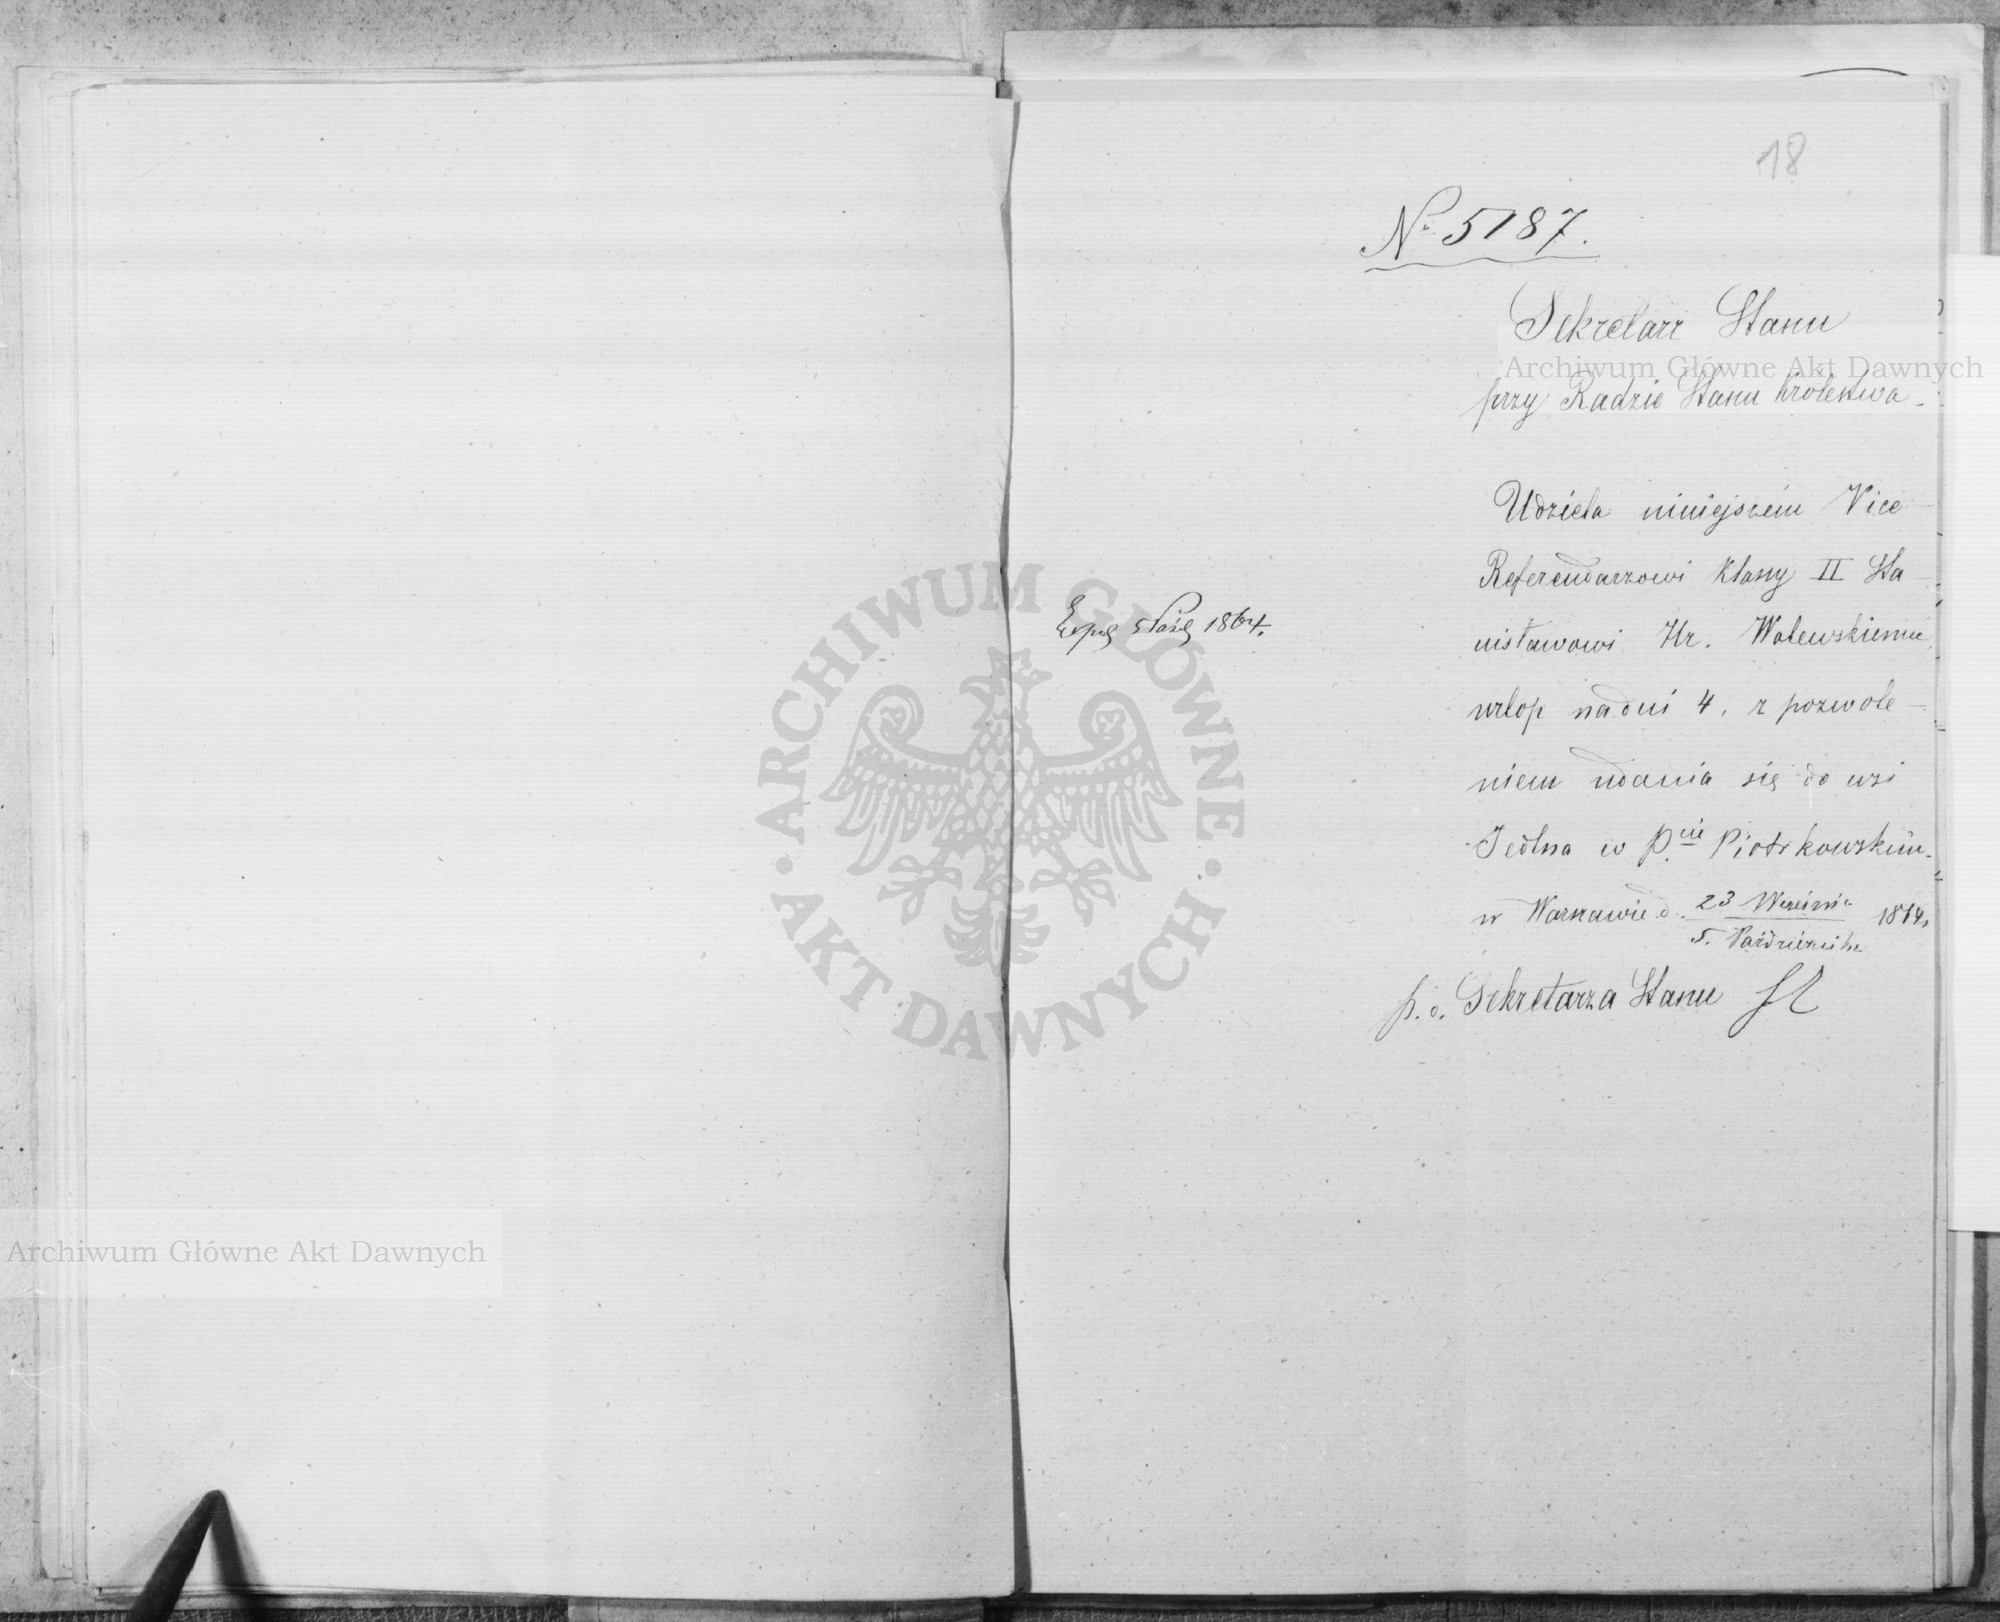 18
No 5187.
Sekretarz Stanu
Archiwum Główne Akt Dawnych
przy Radzie Stanu Królestwa.
Udziela niniejszém Vice
Referendarzowi Klassy II Sta
nisławowi Hr. Walewskiemu
urlop na dni 4, z pozwole
niem udania się do wsi
Jedlna w P.cie Piotrkowskim.
w Warszawie d. 23 Września 1864
5. Października
p. o. Sekretarza Stanu
Exp. 5 Paźd 1864.
ARCHIWUM GŁÓWNE · AKT DAWNYCH ·
Archiwum Główne Akt Dawnych